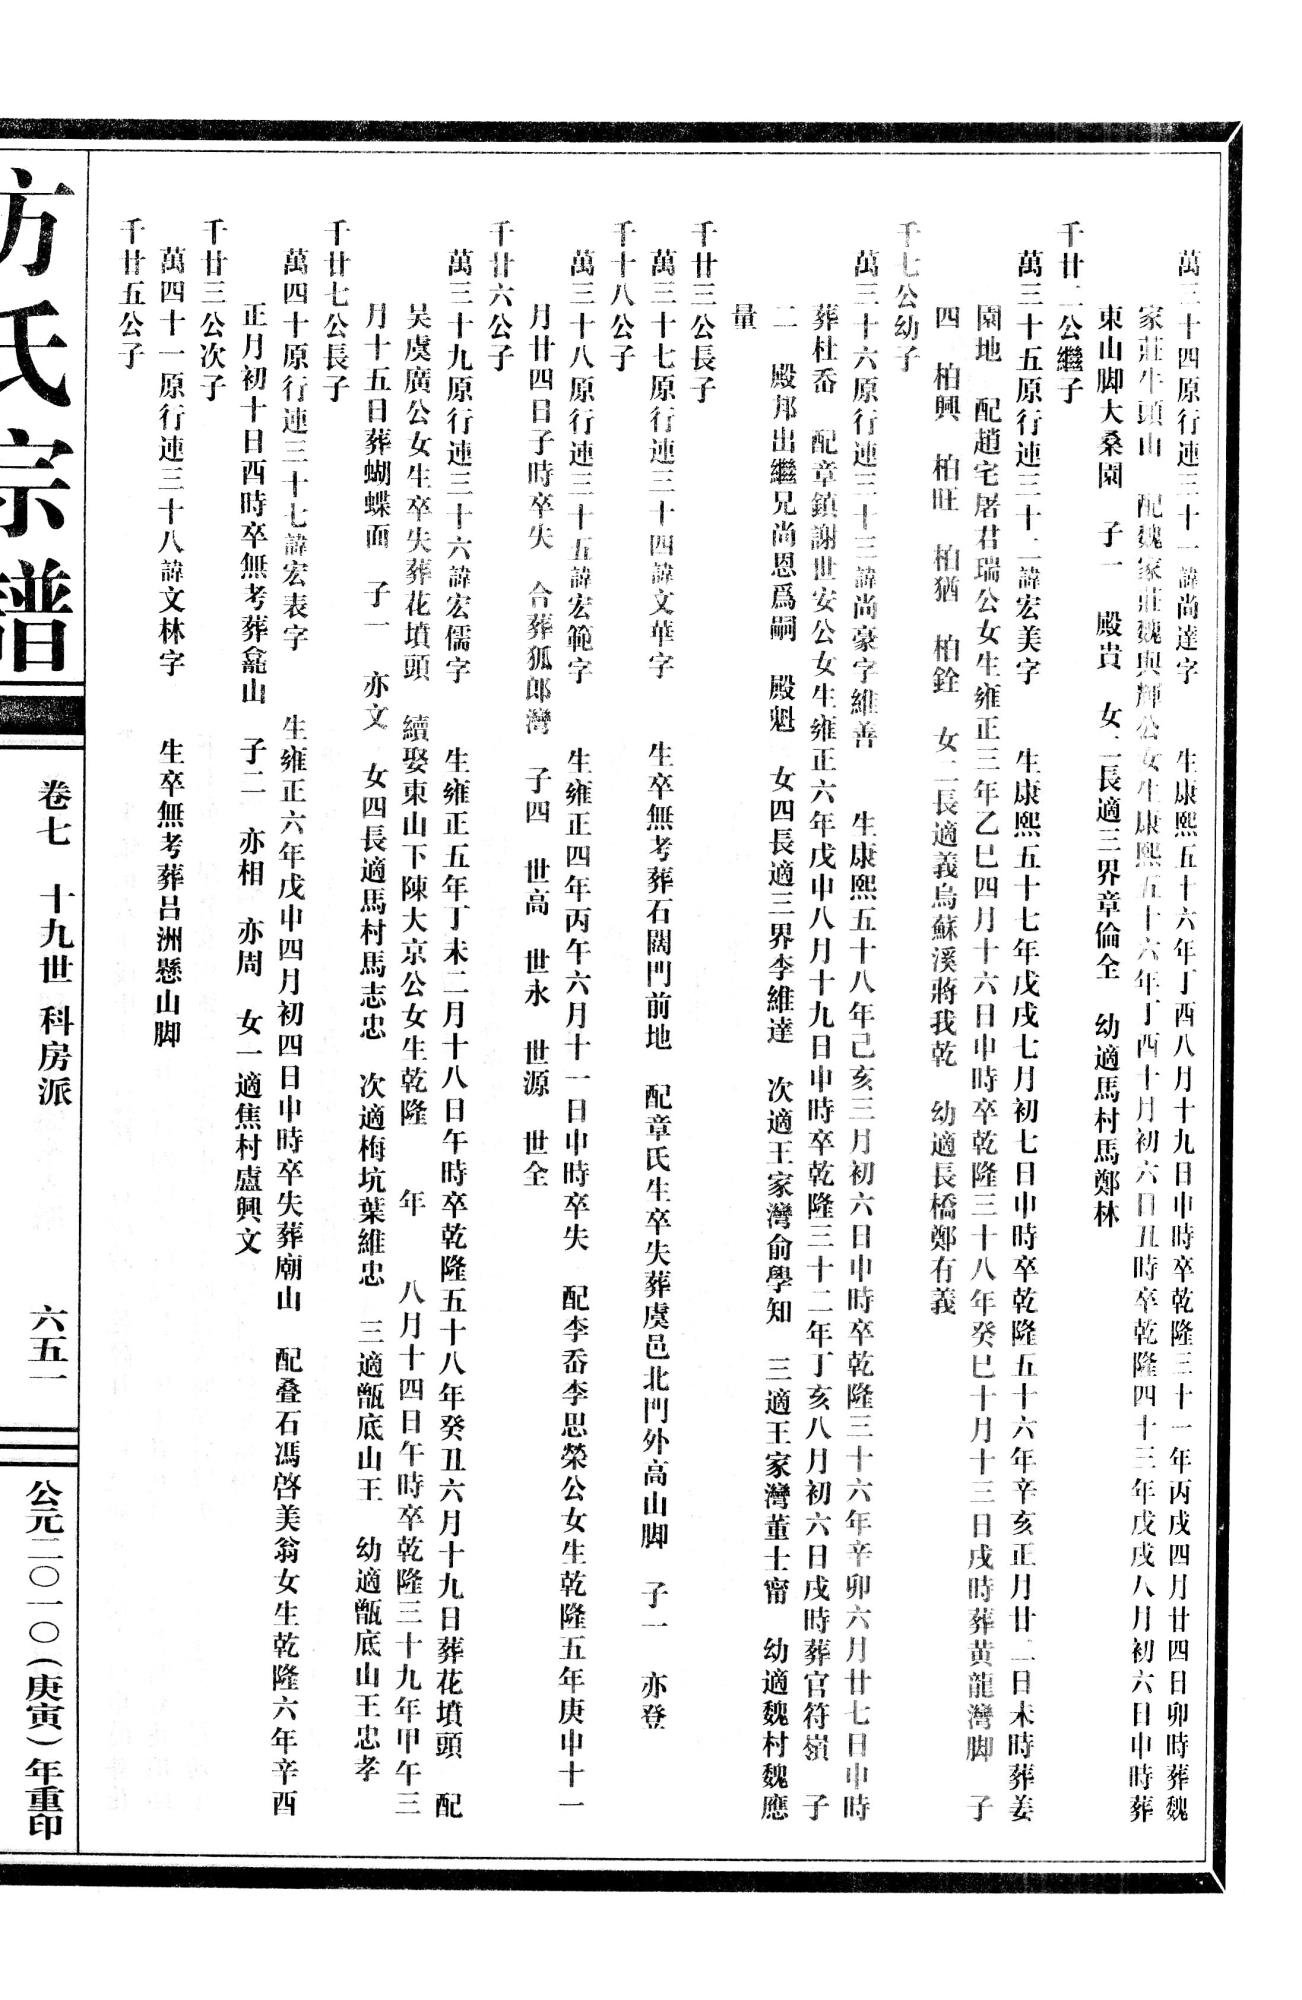 萬三十四原行連三十一諱尚達字　生康熙五十六年丁酉八月十九日申時卒乾隆三十一年丙戌四月廿四日卯時葬魏
家莊牛頭山　配魏家莊魏與輝公女生康熙五十六年丁酉十月初六日丑時卒乾隆四十三年戊戌八月初六日申時葬
東山脚大桑園　子一　殿貴　女二長適三界章倫全　幼適馬村馬鄭林
千廿二公繼子
萬三十五原行連三十二諱宏美字　生康熙五十七年戊戌七月初七日申時卒乾隆五十六年辛亥正月廿二日未時葬姜
園地　配趙宅屠君瑞公女生雍正三年乙巳四月十六日申時卒乾隆三十八年癸巳十月十三日戌時葬黄龍灣脚　子
四　柏興　柏旺　柏猶　柏銓　女二長適義烏蘇溪蔣我乾　幼適長橋鄭有義
千七公幼子
萬三十六原行連三十三諱尚豪字維善　生康熙五十八年己亥三月初六日申時卒乾隆三十六年辛卯六月廿七日申時
葬杜岙　配章鎮謝世安公女生雍正六年戊申八月十九日申時卒乾隆三十二年丁亥八月初六日戌時葬官符嶺　子
二　殿邦出繼兄尚恩爲嗣　殿魁　女四長適三界李維達　次適王家灣俞學知　三適王家灣董士甯　幼適魏村魏應
量
千廿三公長子
萬三十七原行連三十四諱文華字　生卒無考葬石闊門前地　配章氏生卒失葬虞邑北門外高山脚　子一　亦登
千十八公子
萬三十八原行連三十五諱宏範字　生雍正四年丙午六月十一日申時卒失　配李岙李思榮公女生乾隆五年庚申十一
月廿四日子時卒失　合葬狐郎灣　子四　世高　世永　世源　世全
千廿六公子
萬三十九原行連三十六諱宏儒字　生雍正五年丁未二月十八日午時卒乾隆五十八年癸丑六月十九日葬花墳頭　配
吴虞廣公女生卒失葬花墳頭　續娶東山下陳大京公女生乾隆　年　八月十四日午時卒乾隆三十九年甲午三
月十五日葬蝴蝶面　子一　亦文　女四長適馬村馬志忠　次適梅坑葉維忠　三適甑底山王　幼適甑底山王忠孝
千廿七公長子
萬四十原行連三十七諱宏表字　生雍正六年戊申四月初四日申時卒失葬廟山　配叠石馮啓美翁女生乾隆六年辛酉
正月初十日酉時卒無考葬龕山　子二　亦相　亦周　女一適焦村盧興文
千廿三公次子
萬四十一原行連三十八諱文林字　生卒無考葬吕洲懸山脚
千廿五公子
方氏宗譜
卷七　十九世　科房派
六五一
公元二〇一〇（庚寅）年重印